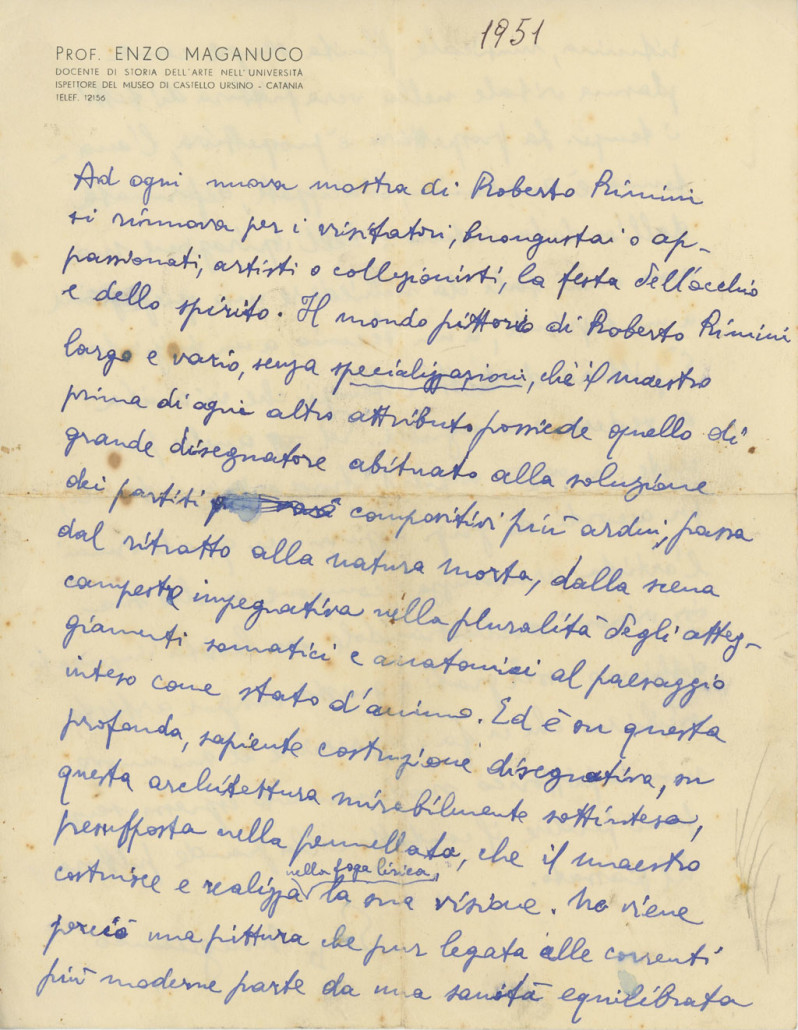 1951
PROF. ENZO MAGANUCO
DOCENTE DI STORIA DELL'ARTE NELL'UNIVERSITÀ
ISPETTORE DEL MUSEO DI CASTELLO URSINO - CATANIA
TELEF. 12156
Ad ogni nuova mostra di Roberto Rimini
si rinnova per i visitatori, buongustai o ap-
passionati, artisti o collezionisti, la festa dell'occhio
e dello spirito. Il mondo pittorico di Roberto Rimini
largo e vario, senza specializzazioni, chè il maestro
prima di ogni altro attributo possiede quello di
grande disegnatore abituato alla soluzione
dei partiti compositivi più ardui, passa
dal ritratto alla natura morta, dalla scena
campestre impegnativa nella pluralità degli atteg-
giamenti somatici e anatomici al paesaggio
inteso come stato d'animo. Ed è su questa
profonda, sapiente costruzione disegnativa, su
questa architettura mirabilmente sottintesa,
presupposta nella pennellata, che il maestro
costruisce e realizza nella foga lirica, la sua visione. Ne viene
perciò una pittura che pur legata alle correnti
più moderne parte da una sanità equilibrata